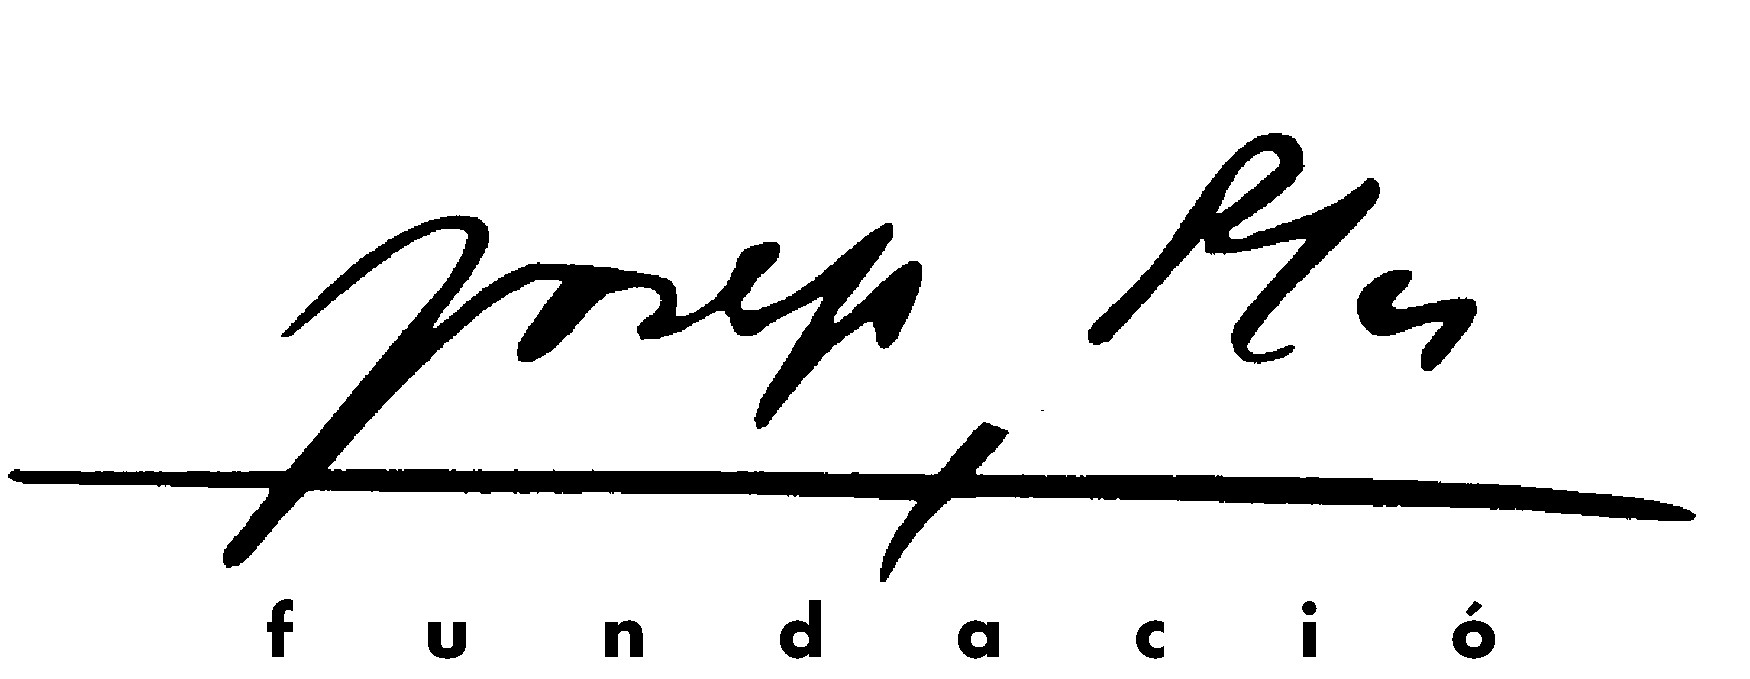 Josep Pla
fundació